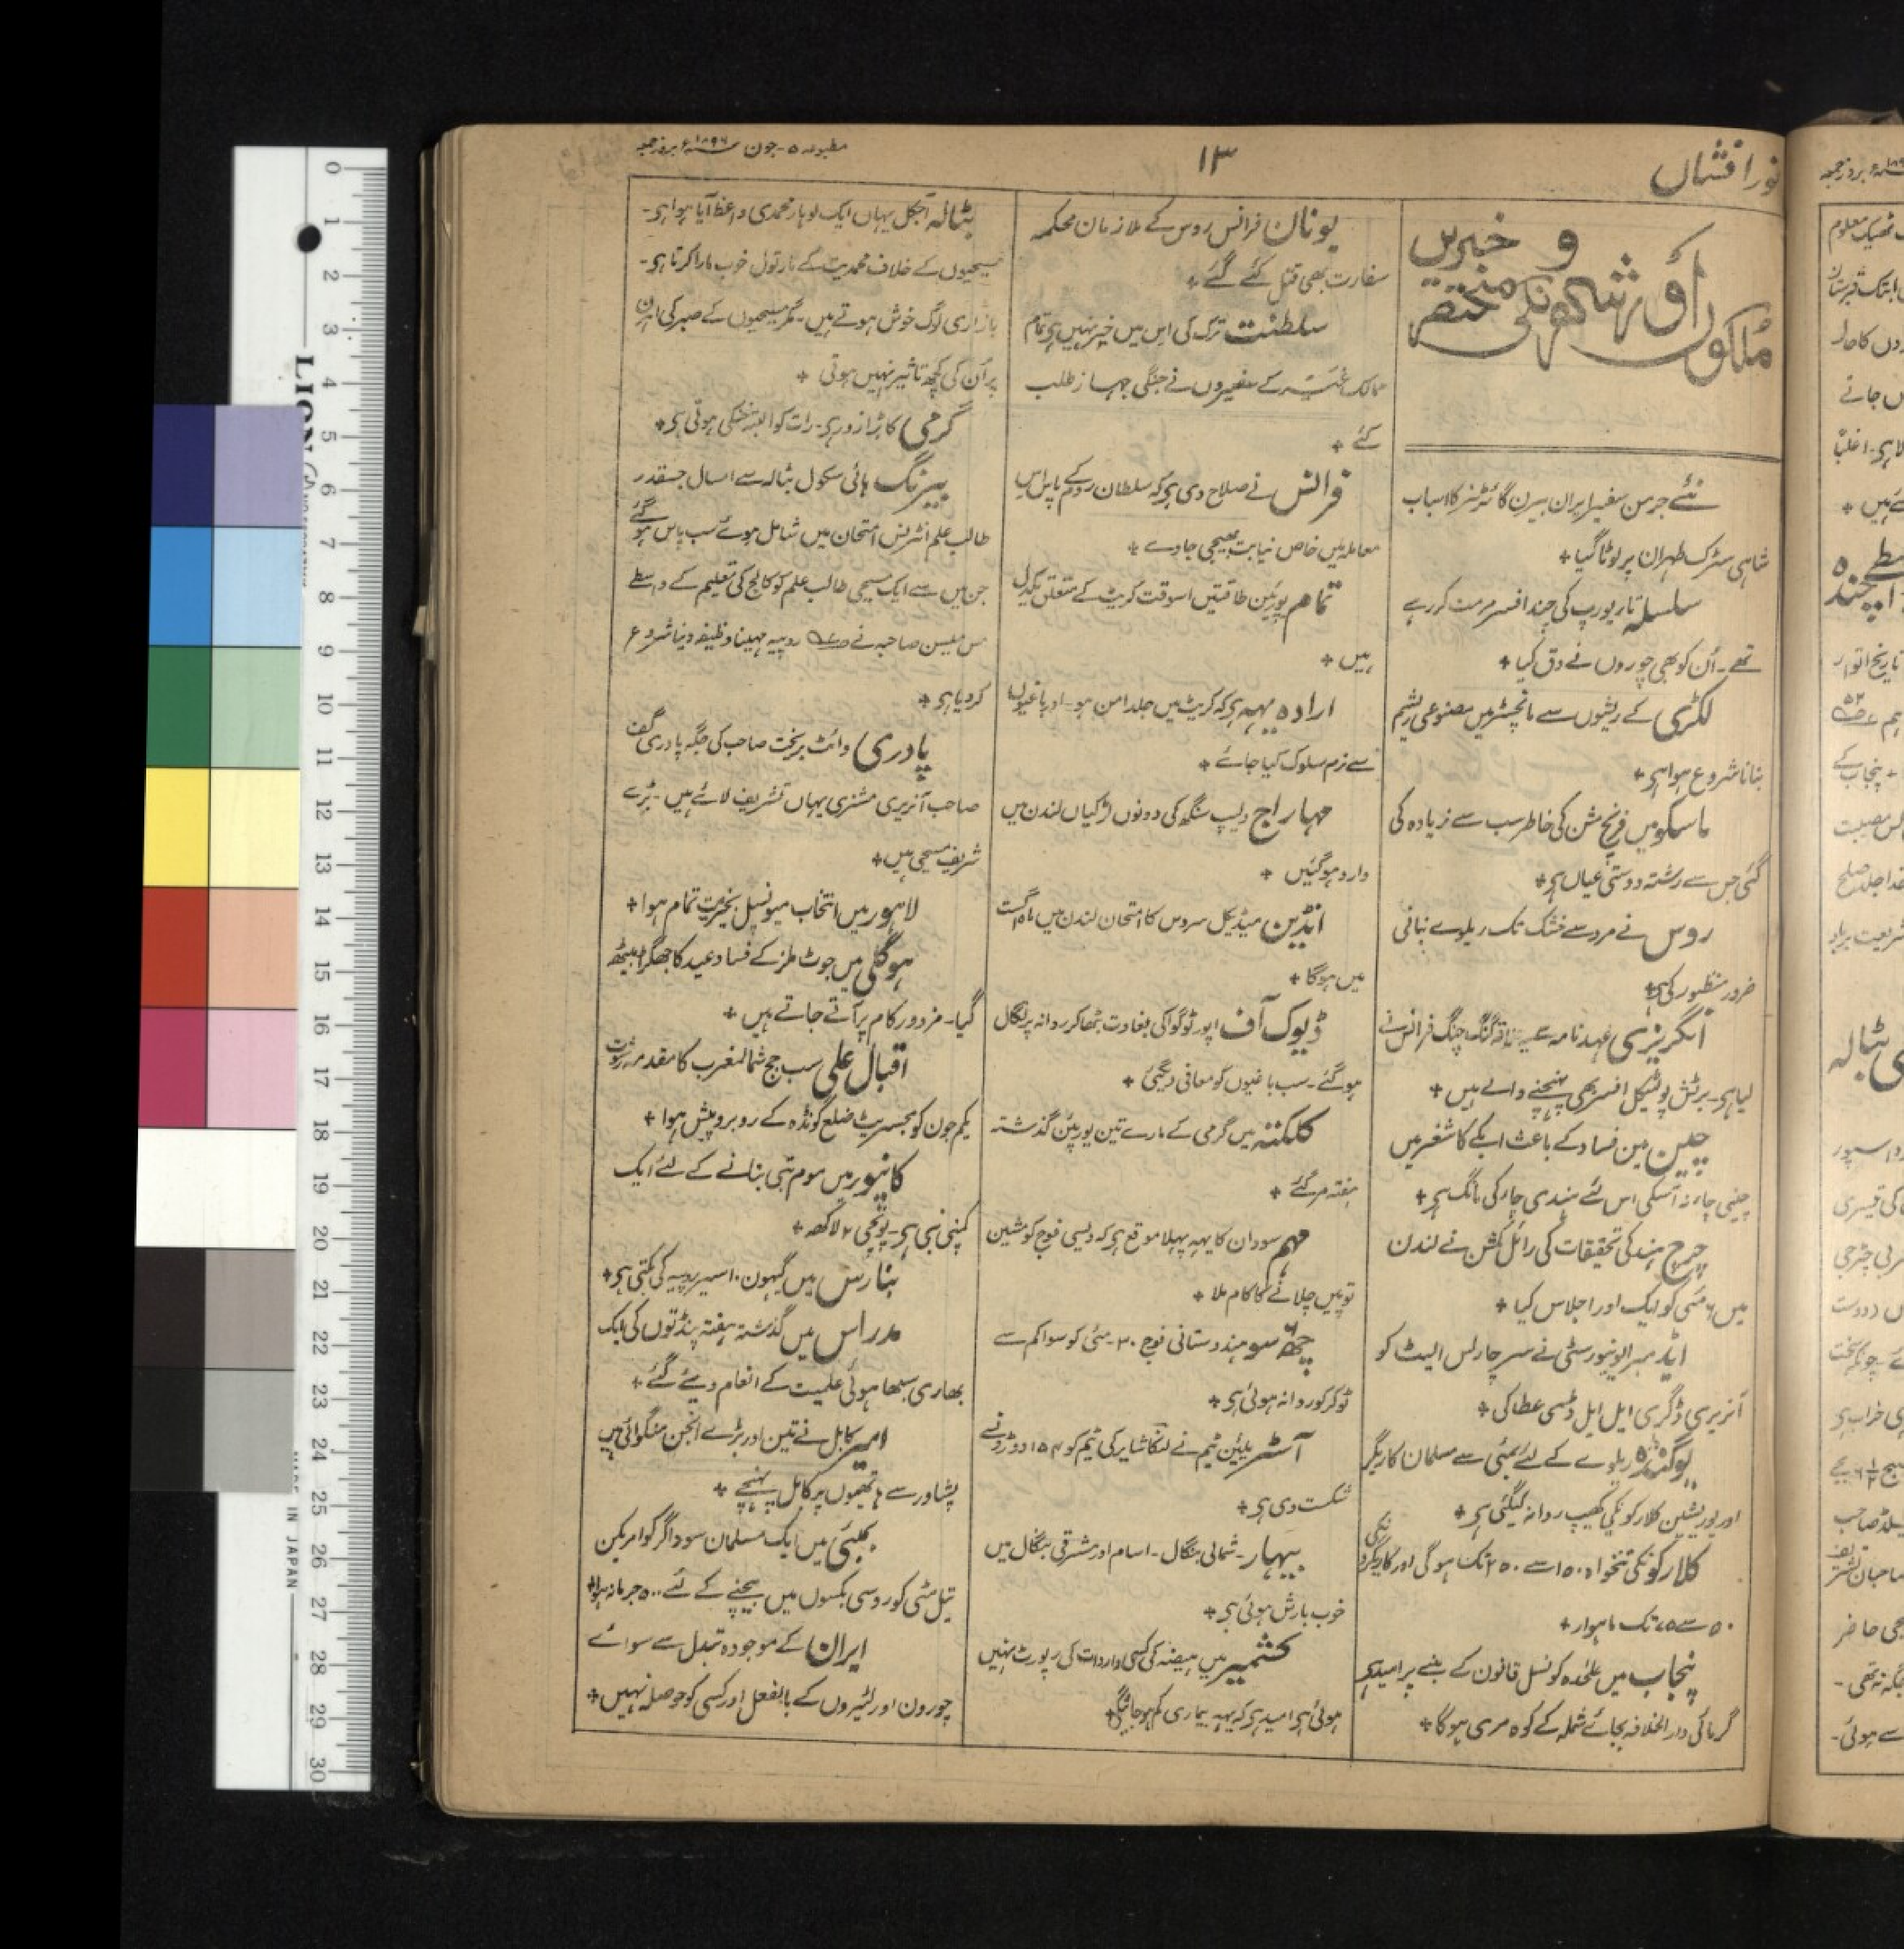 نور افشاں
۱۳
مطبوعہ ۵ - جون ۱۸۹۶ء بروز جمعہ
ملکوں اور شہرونکی مختصر خبریں
نئے جرمن سفیر ایران بیرن گائرٹنر کا اسباب
شاہی سٹرک طہران پر لوٹا گیا +
سلسلہ تار یورپ کی چند افسر مرمت کر رہے
تھے - اُن کو بھی چوروں نے دق کیا +
لکڑی کے ریشوں سے مانچسٹر میں مصنوعی ریشم
بنانا شروع ہوا ہی +
ماسکو میں فرنچ مشن کی خاطر سب سے زیادہ کی
گئی جس سے رشتہ دوستی عیاں ہی +
روس نے مرد سے خشک تک ریلوے بنانی
ضرور منظور کی ہی +
انگریزی عہد نامہ سے علاقہ کنگ چنگ فرانس نے
لیا ہی - برٹش پولٹیکل افسر بھی پہنچنے والے ہیں +
چین مین فساد کے باعث ابکے کاشغر میں
چینی چاء نہ آسکی اس لئے ہندی چاء کی مانگ ہی +
چرچ ہند کی تحقیقات کی رائل کمشن نے لندن
میں ۶ مئی کو ایک اور اجلاس کیا +
ایڈمبرا یونیورسٹی نے سر چارلس الیٹ کو
آنریری ڈگری ایل ایل ڈی عطا کی +
یوگنڈہ ریلوے کے لئے بمبئی سے مسلمان کاریگر
اور یوریشین کلارکونکی کھیپ روانہ کیگئی ہی +
کلارکونکی تنخواہ ۱۵۰ سے ۲۵۰ تک ہوگی اور کاریگرونکی
۵۰ سے ۷۵ تک ماہوار +
پنجاب میں علیٰحدہ کونسل قانون کے بننے پر امید ہی
گرمائی دارالخلافہ بجائے شملہ کے کوہ مری ہوگا +
یونان فرانس روس کے ملازمان محکمہ
سفارت بھی قتل کئے گئے +
سلطنت ترک کی اس میں خیر نہیں ہی تمام
ممالک کے سفیروں نے جنگی جہاز طلب
کئے +
فرانس نے صلاح دی ہی کہ سلطان روم کے پاس اس
معاملہ میں خاص نیابت بھیجی جاوے +
تمام یورپین طاقتیں اسوقت کریٹ کے متعلق یکدل
ہیں +
ارادہ یہہ ہی کہ کریٹ میں جلد امن ہو - اور باغیوں
سے نرم سلوک کیا جائے +
مہاراج دلیپ سنگھ کی دونوں لڑکیاں لندن میں
وارد ہوگئیں +
انڈین میڈیکل سروس کا امتحان لندن میں اگست
میں ہوگا +
ڈیوک آف اپورٹو گوا کی بغاوت مٹھا کر روانہ پرتگال
ہوگئے - سب باغیوں کو معافی دیگئی +
کلکتہ میں گرمی کے مارے تین یورپین گذشتہ
ہفتہ مر گئے +
مہم سودان کا یہہ پہلا موقع ہی کہ دیسی فوج کو مشین
توپیں چلانے کا کام ملا +
چھہ سو ہندوستانی فوج ۳۰ - مئی کو سواکم سے
ٹوکر کو روانہ ہوئی ہی +
آسٹریلین ٹیم نے لنکاشایر کی ٹیم کو ۱۵۴ دوڑونسے
شکست دی ہی +
بیہار - شمالی بنگال - اسام اور مشرقی بنگال میں
خوب بارش ہوئی ہی +
کشمیر میں ہیضہ کی کسی واردات کی رپورٹ نہیں
ہوئی ہی امید ہی کہ یہہ بیماری کم ہو جائیگی +
بٹالہ آجکل یہاں ایک لوہار محمدی واعظ آیا ہوا ہی -
مسیحیوں کے خلاف محمدیت کے نارتول خوب مارا کرتا ہی -
بازاری لوگ خوش ہوتے ہیں - مگر مسیحیوں کے صبر کی اہرن
پر اُن کی کچھ تاثیر نہیں ہوتی +
گرمی کا بڑا زور ہی - رات کو البتہ خنکی ہوتی ہی +
بیرنگ ہائی سکول بٹالہ سے امسال جسقدر
طالب علم انٹرنس امتحان میں شامل ہوئے سب پاس ہو گئے
جن میں سے ایک مسیحی طالب علم کو کالج کی تعلیم کے واسطے
مس صاحبہ نے روپیہ مہینا وظیفہ دینا شروع
کر دیا ہی +
پادری وائٹ بریخت صاحب کی جگہ پادری گف
صاحب آنریری مشنری یہاں تشریف لائے ہیں - بڑے
شریف مسیحی ہیں +
لاہور میں انتخاب میونسپل بخیریت تمام ہوا +
ہوگلی میں جوٹ ملز کے فساد عید کا جھگڑا بیٹھ
گیا - مزدور کام پر آتے جاتے ہیں +
اقبال علی سب جج شمالمغرب کا مقدمہ رشوت
یکم جون کو مجسٹریٹ ضلع گونڈہ کے روبرو پیش ہوا +
کانپور میں موم بتی بنانے کے لئے ایک
کمپنی بنی ہی - پونجی ۲ لاکھ +
بنارس میں گیہون ۱۰ سیر روپیہ کی بکتی ہی +
مدراس میں گذشتہ ہفتہ پنڈتوں کی ایک
بھاری سبھا ہوئی علمیت کے انعام دیئے گئے +
امیر کابل نے تین اور بڑے انجن منگوائی ہیں
پشاور سے ہاتھیوں پر کابل پہنچے +
بمبئی میں ایک مسلمان سوداگر کو امریکن
تیل مٹی کو روسی بکسوں میں بیچنے کے لئے ۵۰۰ جرمانہ ہوا +
ایران کے موجودہ تبدل سے سوائے
چورون اور لٹیروں کے بالفعل اور کسی کو حوصلہ نہیں +